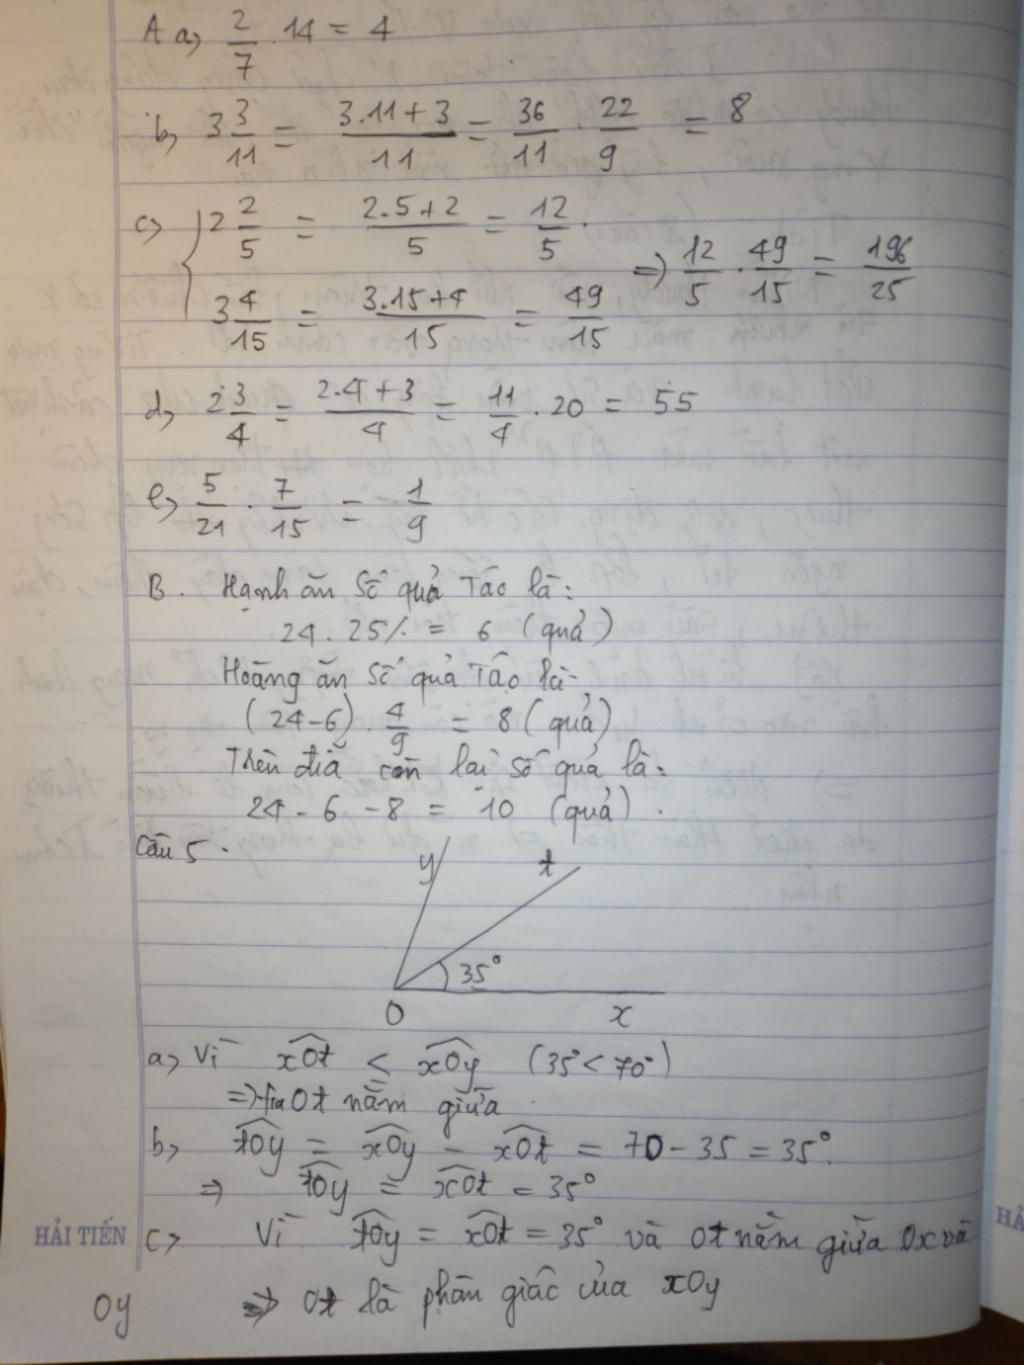 A a) 2/7 . 14 = 4
b) 3 3/11 = (3.11+3)/11 = 36/11 . 22/9 = 8
c) { 2 2/5 = (2.5+2)/5 = 12/5 .
3 4/15 = (3.15+4)/15 = 49/15 => 12/5 . 49/15 = 196/25
d) 2 3/4 = (2.4+3)/4 = 11/4 . 20 = 55
e) 5/21 . 7/15 = 1/9
B. Hạnh ăn số quả Táo là:
24 . 25% = 6 (quả)
Hoàng ăn số quả Táo là
(24-6) . 4/9 = 8 (quả)
Trên đĩa còn lại số quả là:
24 - 6 - 8 = 10 (quả).
Câu 5.
y t
35°
O x
a) Vì xOt < xOy (35° < 70°)
=> tia Ot nằm giữa
b) tOy = xOy - xOt = 70 - 35 = 35°.
=> tOy = xOt = 35°
HẢI TIẾN
c) Vì tOy = xOt = 35° và Ot nằm giữa Ox và
Oy => Ot là phân giác của xOy
HẢ